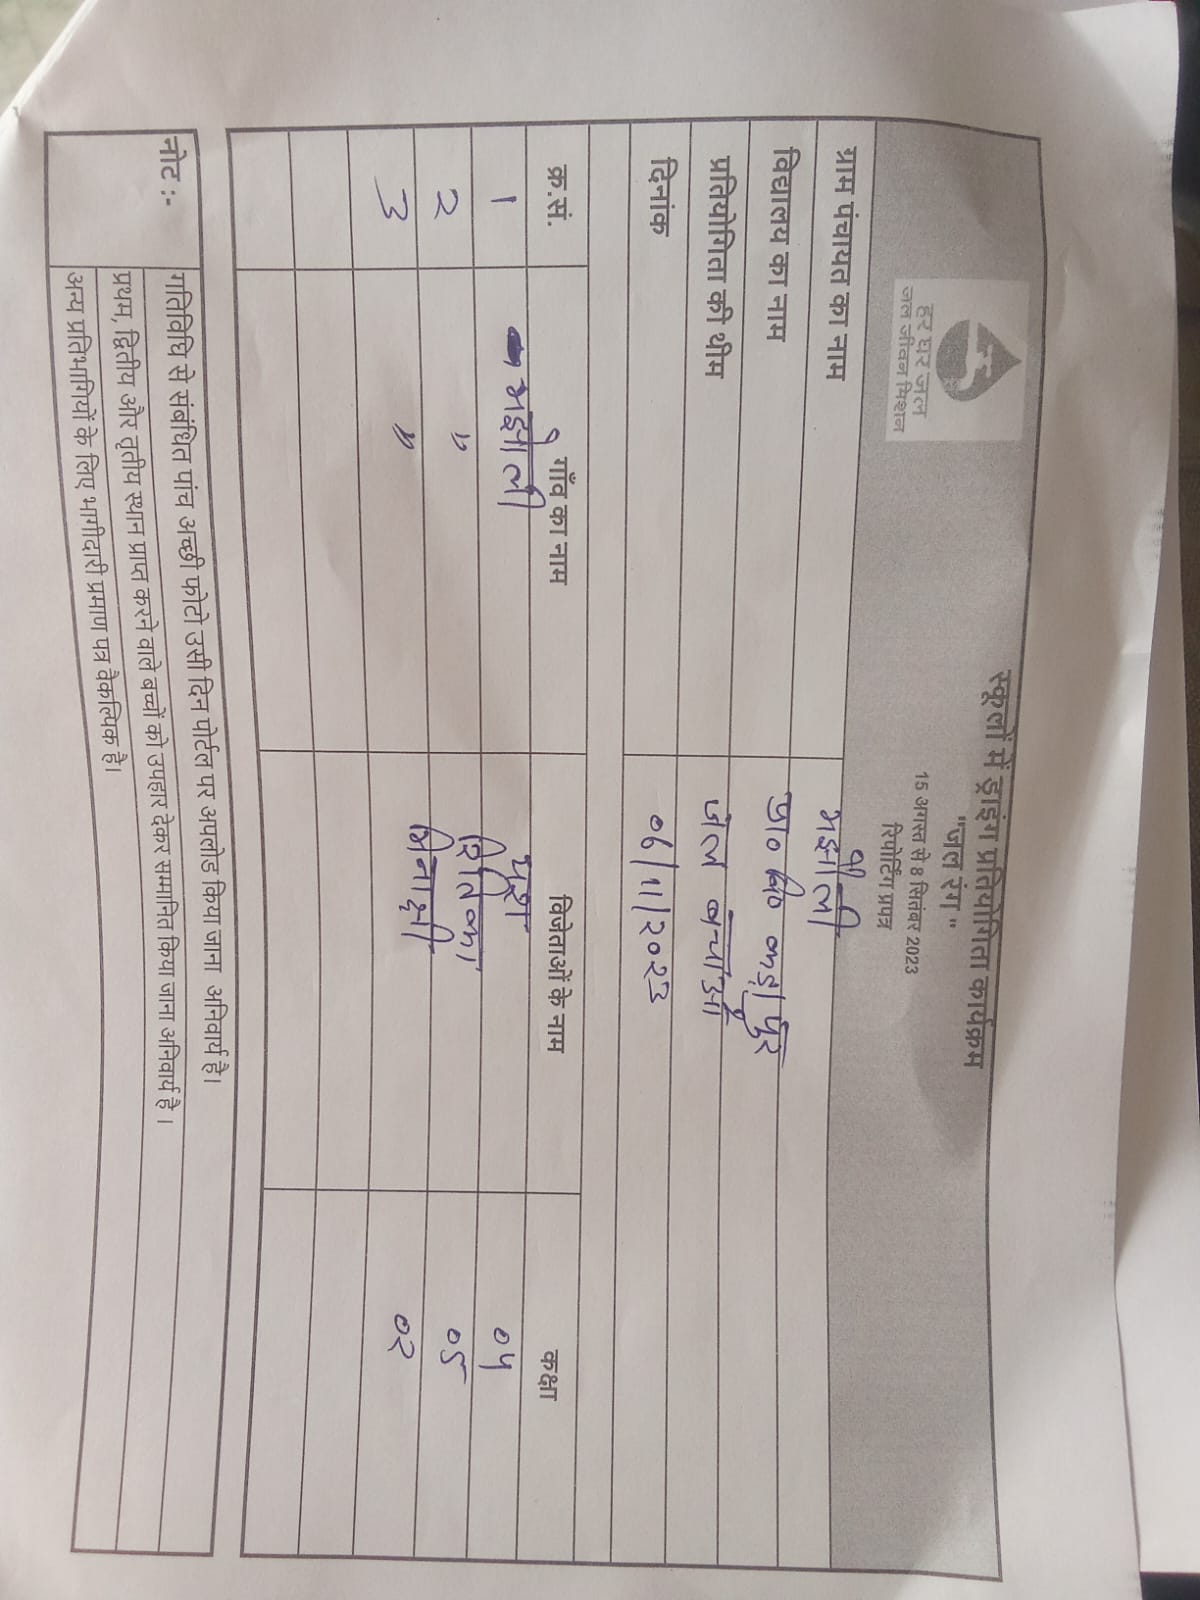 हर घर जल
जल जीवन मिशन
स्कूलों में ड्राइंग प्रतियोगिता कार्यक्रम
"जल रंग"
15 अगस्त से 8 सितंबर 2023
रिपोर्टिंग प्रपत्र
ग्राम पंचायत का नाम
विद्यालय का नाम प्रा० वि०
प्रतियोगिता की थीम जल बचाओ
दिनांक 06/11/2023
क्र.सं. गाँव का नाम विजेताओं के नाम कक्षा
1 04
2 " 05
3 " 02
नोट :- गतिविधि से संबंधित पांच अच्छी फोटो उसी दिन पोर्टल पर अपलोड किया जाना अनिवार्य है।
प्रथम, द्वितीय और तृतीय स्थान प्राप्त करने वाले बच्चों को उपहार देकर सम्मानित किया जाना अनिवार्य है ।
अन्य प्रतिभागियों के लिए भागीदारी प्रमाण पत्र वैकल्पिक है।